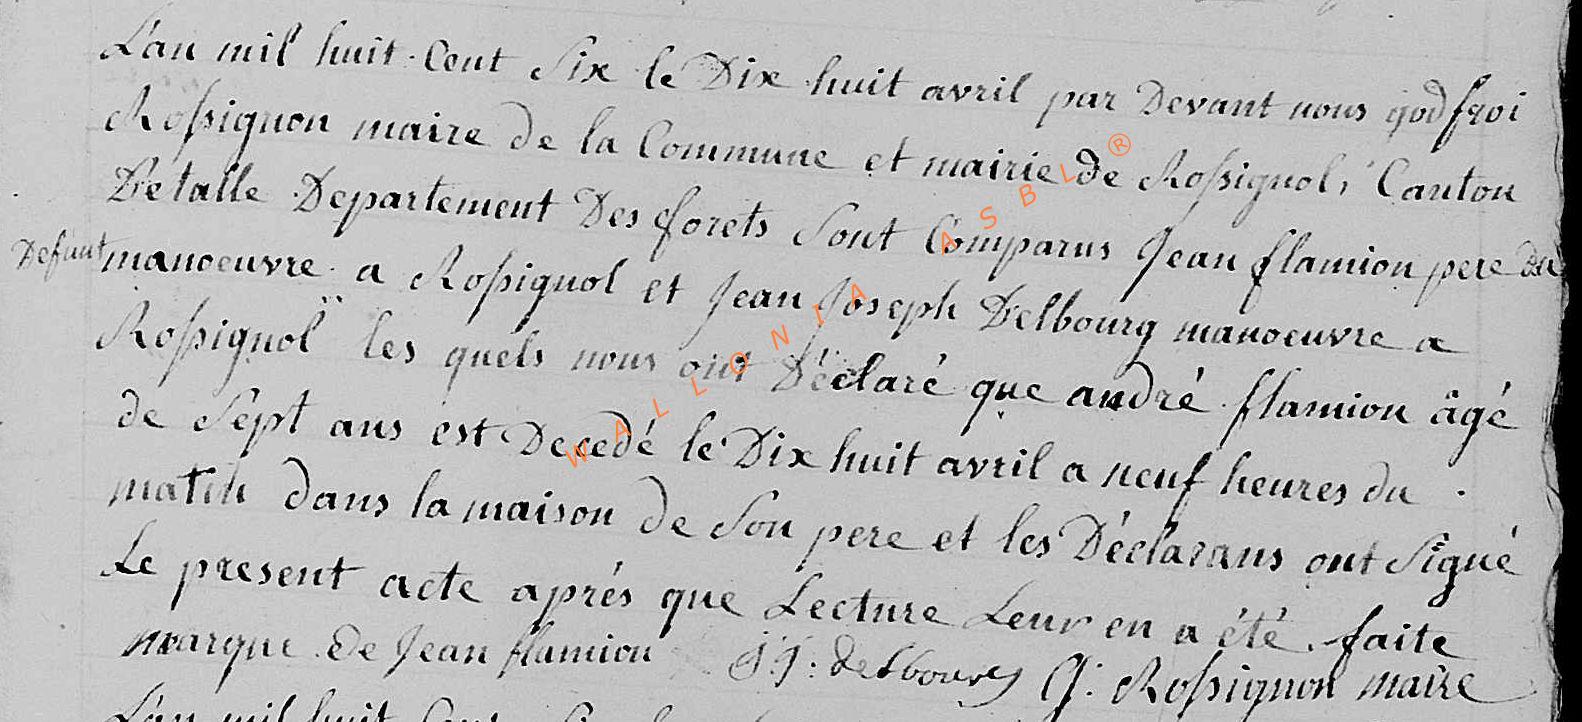 L'an mil huit Cent Six le Dix huit avril par Devant nous godfroi
Rossignon maire de la Commune et mairie de Rossignol, Canton
D'Etalle Departement Des forets Sont Comparus Jean flamion pere du
Defunt manoeuvre a Rossignol et Jean Joseph Delbourg manoeuvre a
Rossignol les quels nous ont Déclaré que andré flamion âgé
de Sept ans est Decedé le Dix huit avril a neuf heures du
matin dans la maison de Son pere et les Déclarans ont Signé
Le present acte aprés que Lecture Leur en a été faite
marque de Jean flamion J. J. : delbourg G. Rossignon maire
L'an mil huit Cent Six
WALLONIA ASBL ®